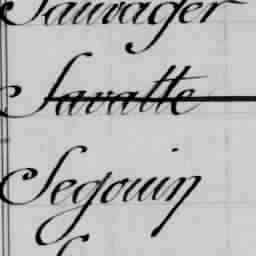 Sauvager
Savatte
Segouin